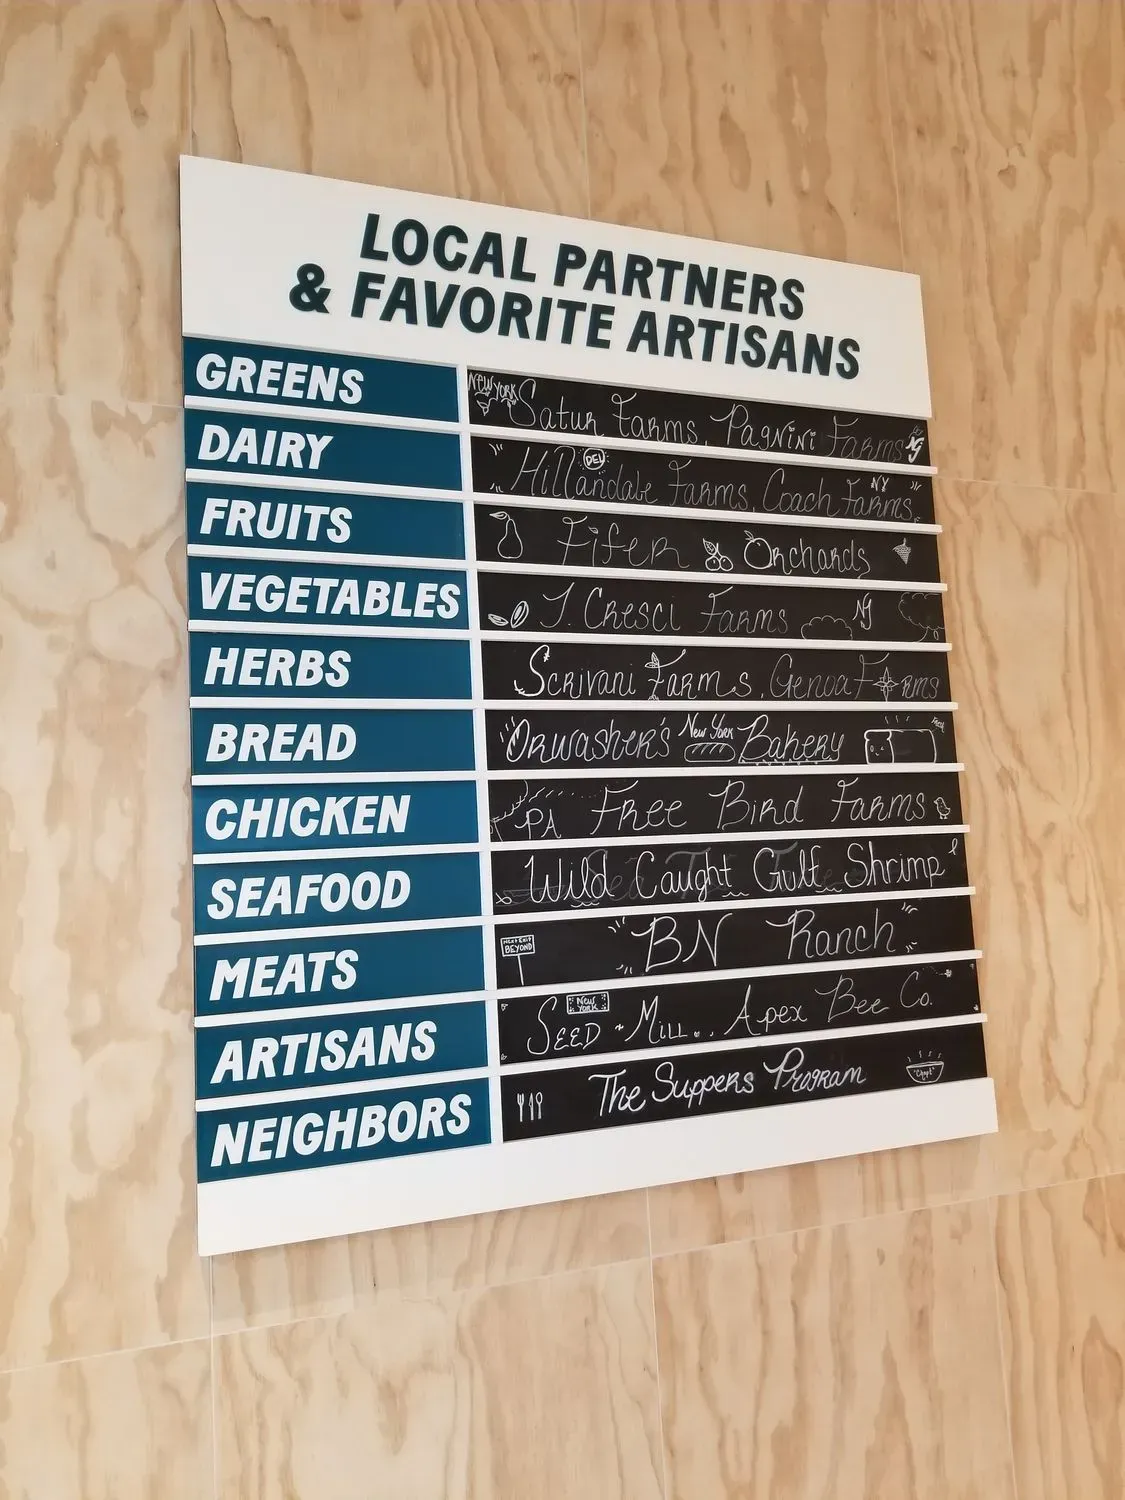 LOCAL PARTNERS
& FAVORITE ARTISANS
GREENS NEW YORK Satur Farms, Pagnini Farms NJ
DAIRY Hillandale Farms, DEL Coach Farms NY
FRUITS Fifer Orchards
VEGETABLES J. Cresci Farms NJ
HERBS Scrivani Farms, Genoa Farms
BREAD Orwasher's New York Bakery
CHICKEN PA Free Bird Farms
SEAFOOD Wild Caught Gulf Shrimp
MEATS NEXT EXIT BEYOND BN Ranch
ARTISANS SEED + MILL, New York Apex Bee Co.
NEIGHBORS The Suppers Program